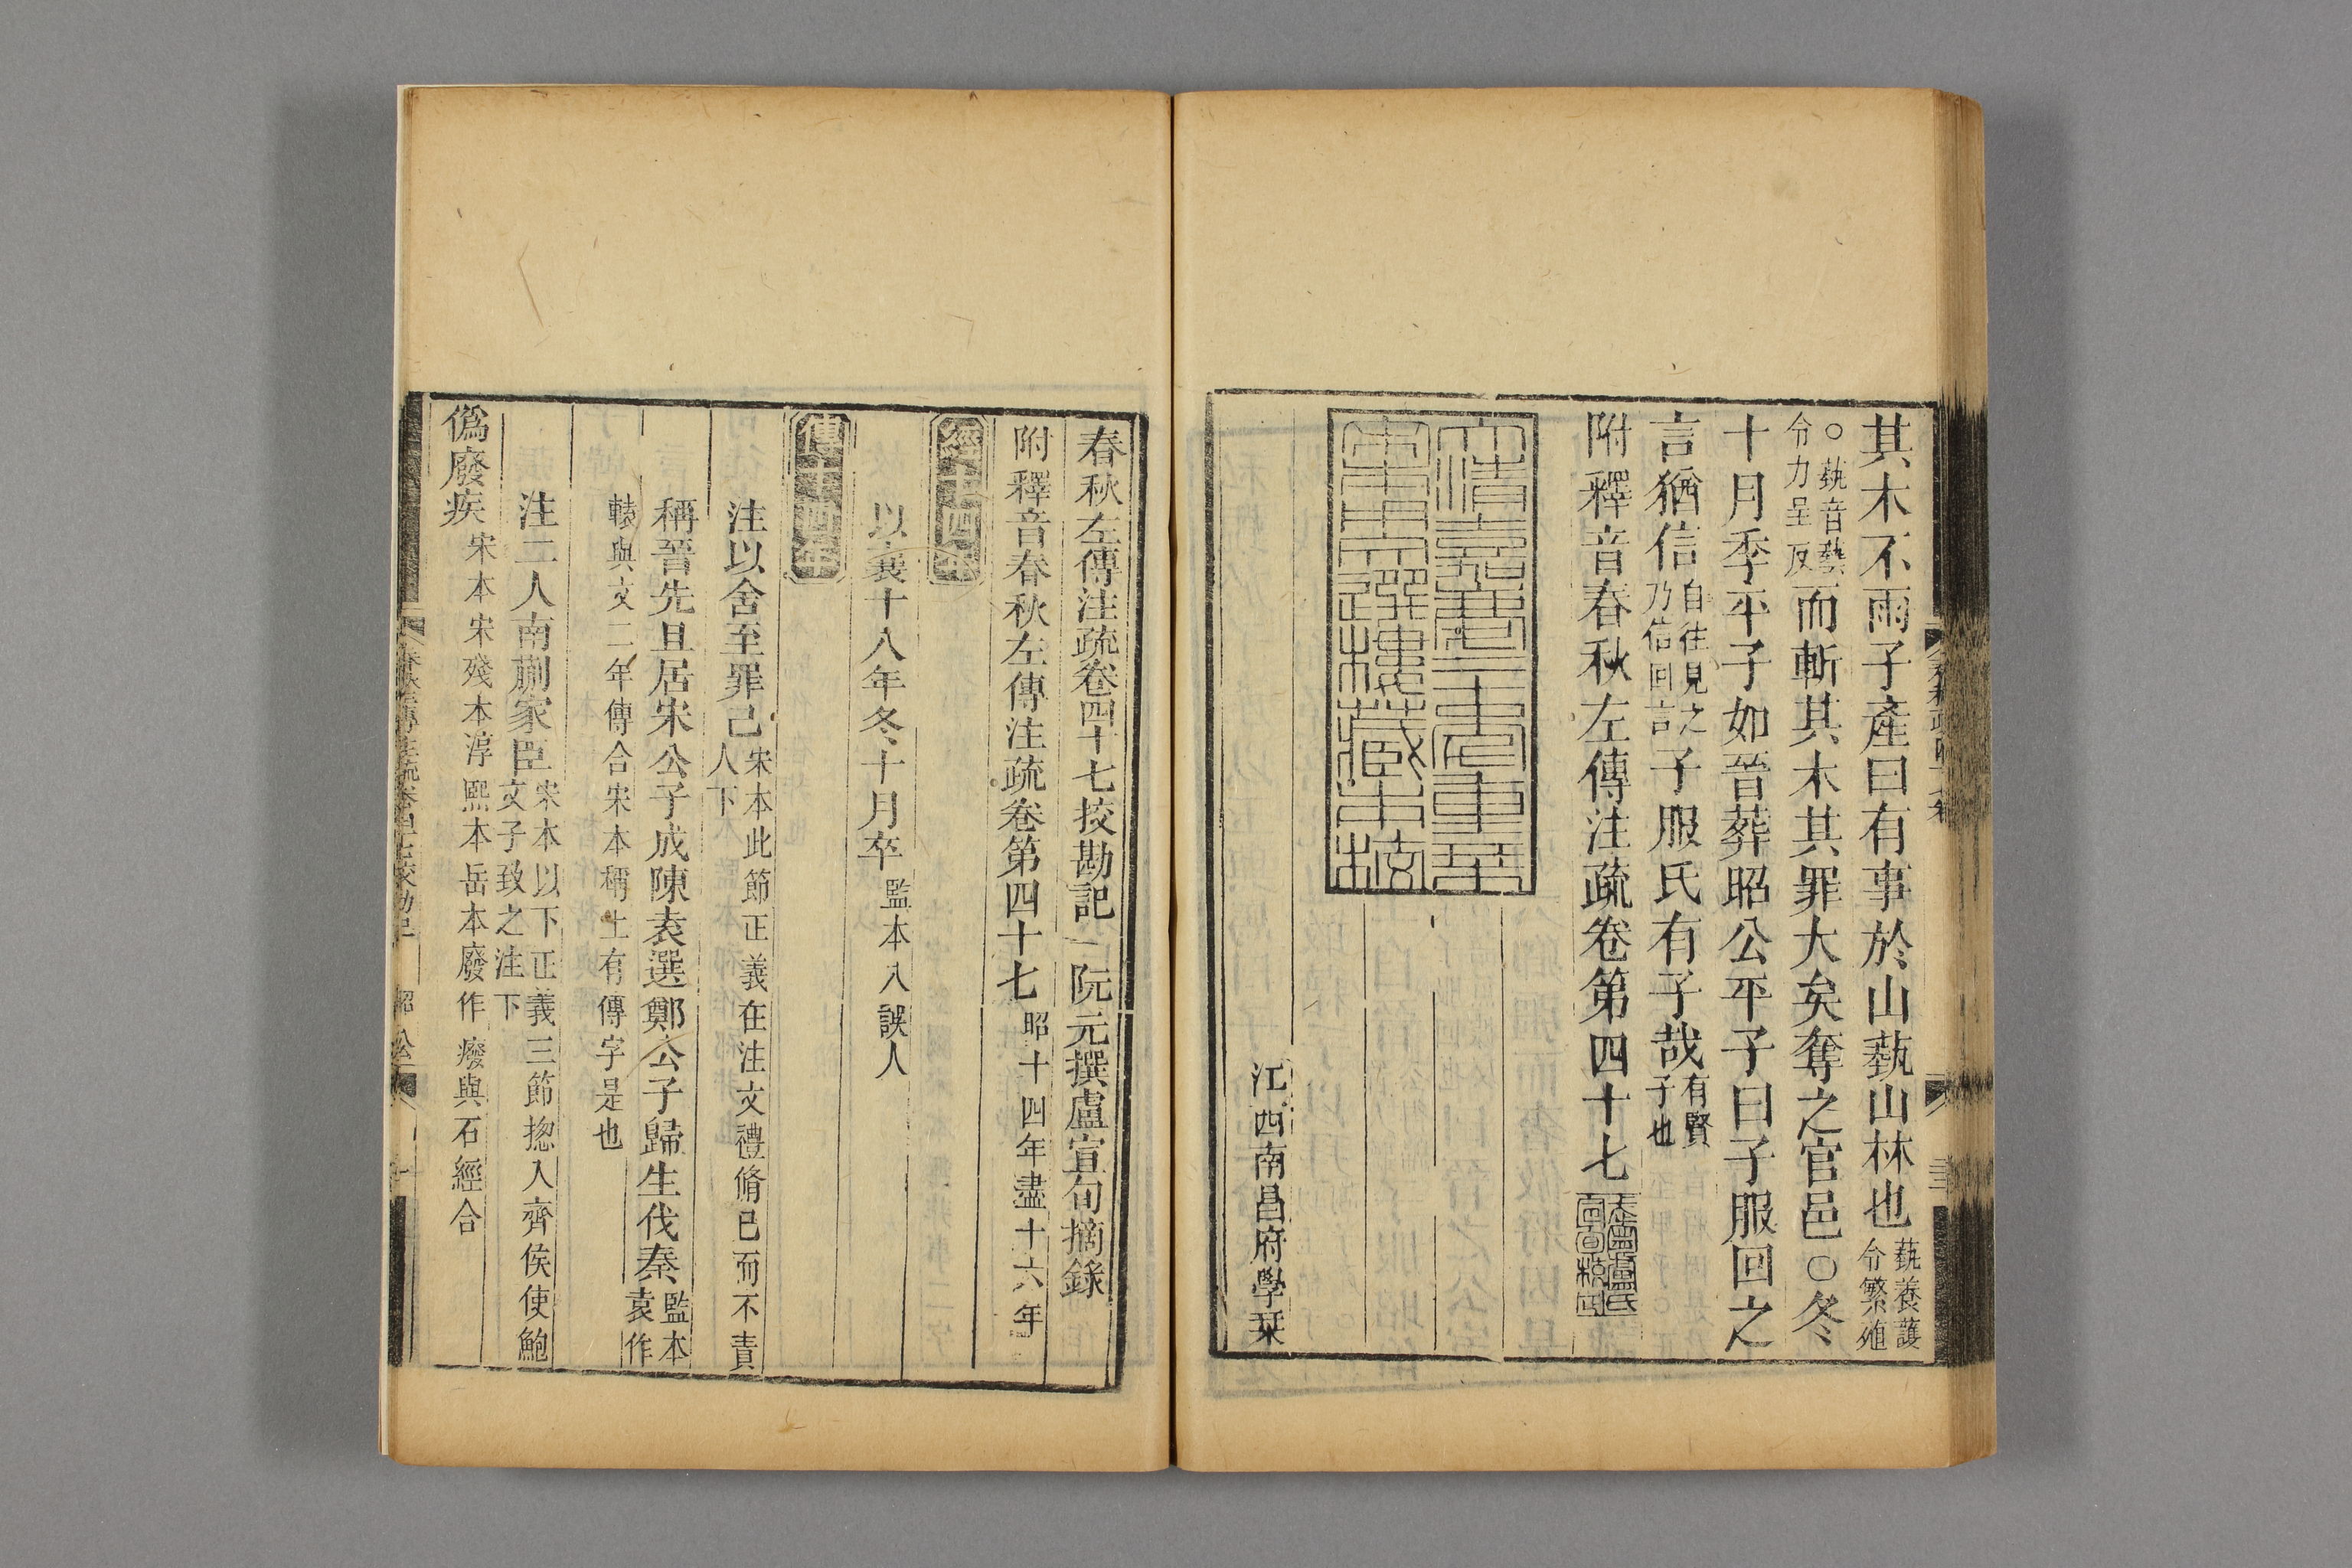 其木不雨子產曰有事於山蓺山林也蓺養護令繁殖
○蓺音藝令力呈反而斬其木其罪大矣奪之官邑○冬
十月季平子如晉葬昭公平子曰子服回之
言猶信自往見之乃信回言子服氏有子哉有賢子也
附釋音春秋左傳注疏卷第四十七
大清嘉慶二十年重栞
宋本文選樓藏本校
江西南昌府學栞
春秋左傳注疏卷四十七挍勘記 阮元撰盧宣旬摘錄
附釋音春秋左傳注疏卷第四十七昭十四年盡十六年
經十四年
以襄十八年冬十月卒監本八誤人
傳十四年
注以舍至罪己宋本此節正義在注文禮脩已而不責人下
稱晉先且居宋公子成陳袁選鄭公子歸生伐秦監本袁作
轅與文二年傳合宋本稱上有傳字是也
注二人南蒯家臣宋本以下正義三節揔入齊侯使鮑文子致之注下
僞廢疾宋本宋殘本淳熙本岳本廢作癈與石經合